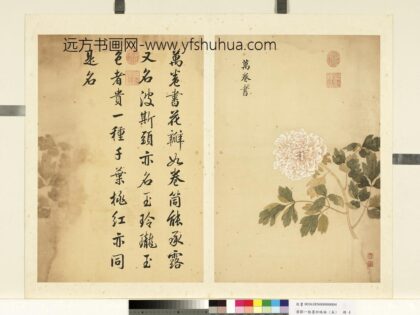 远方书画网-www.yfshuhua.com
萬卷書
萬卷書花瓣如卷筒能承露
又名波斯頭亦名玉玲瓏玉
色者貴一種千葉桃紅亦同
是名